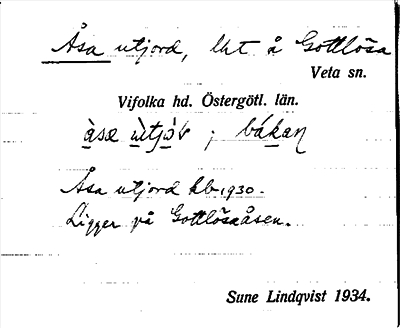 Åsa utjord, lht å Gottlösa
Veta sn.
Vifolka hd. Östergötl. län.
àsa ùtjò ; bákan
Åsa utjord kb 1930.
Ligger på Gottlösaåsen.
Sune Lindqvist 1934.